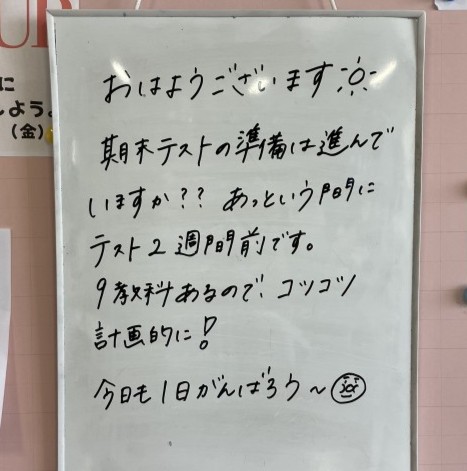 UR
に
しよう。
（金）
おはようございます
期末テストの準備は進んで
いますか?? あっという間に
テスト2週間前です。
9教科あるので、コツコツ
計画的に!
今日も1日がんばろう～